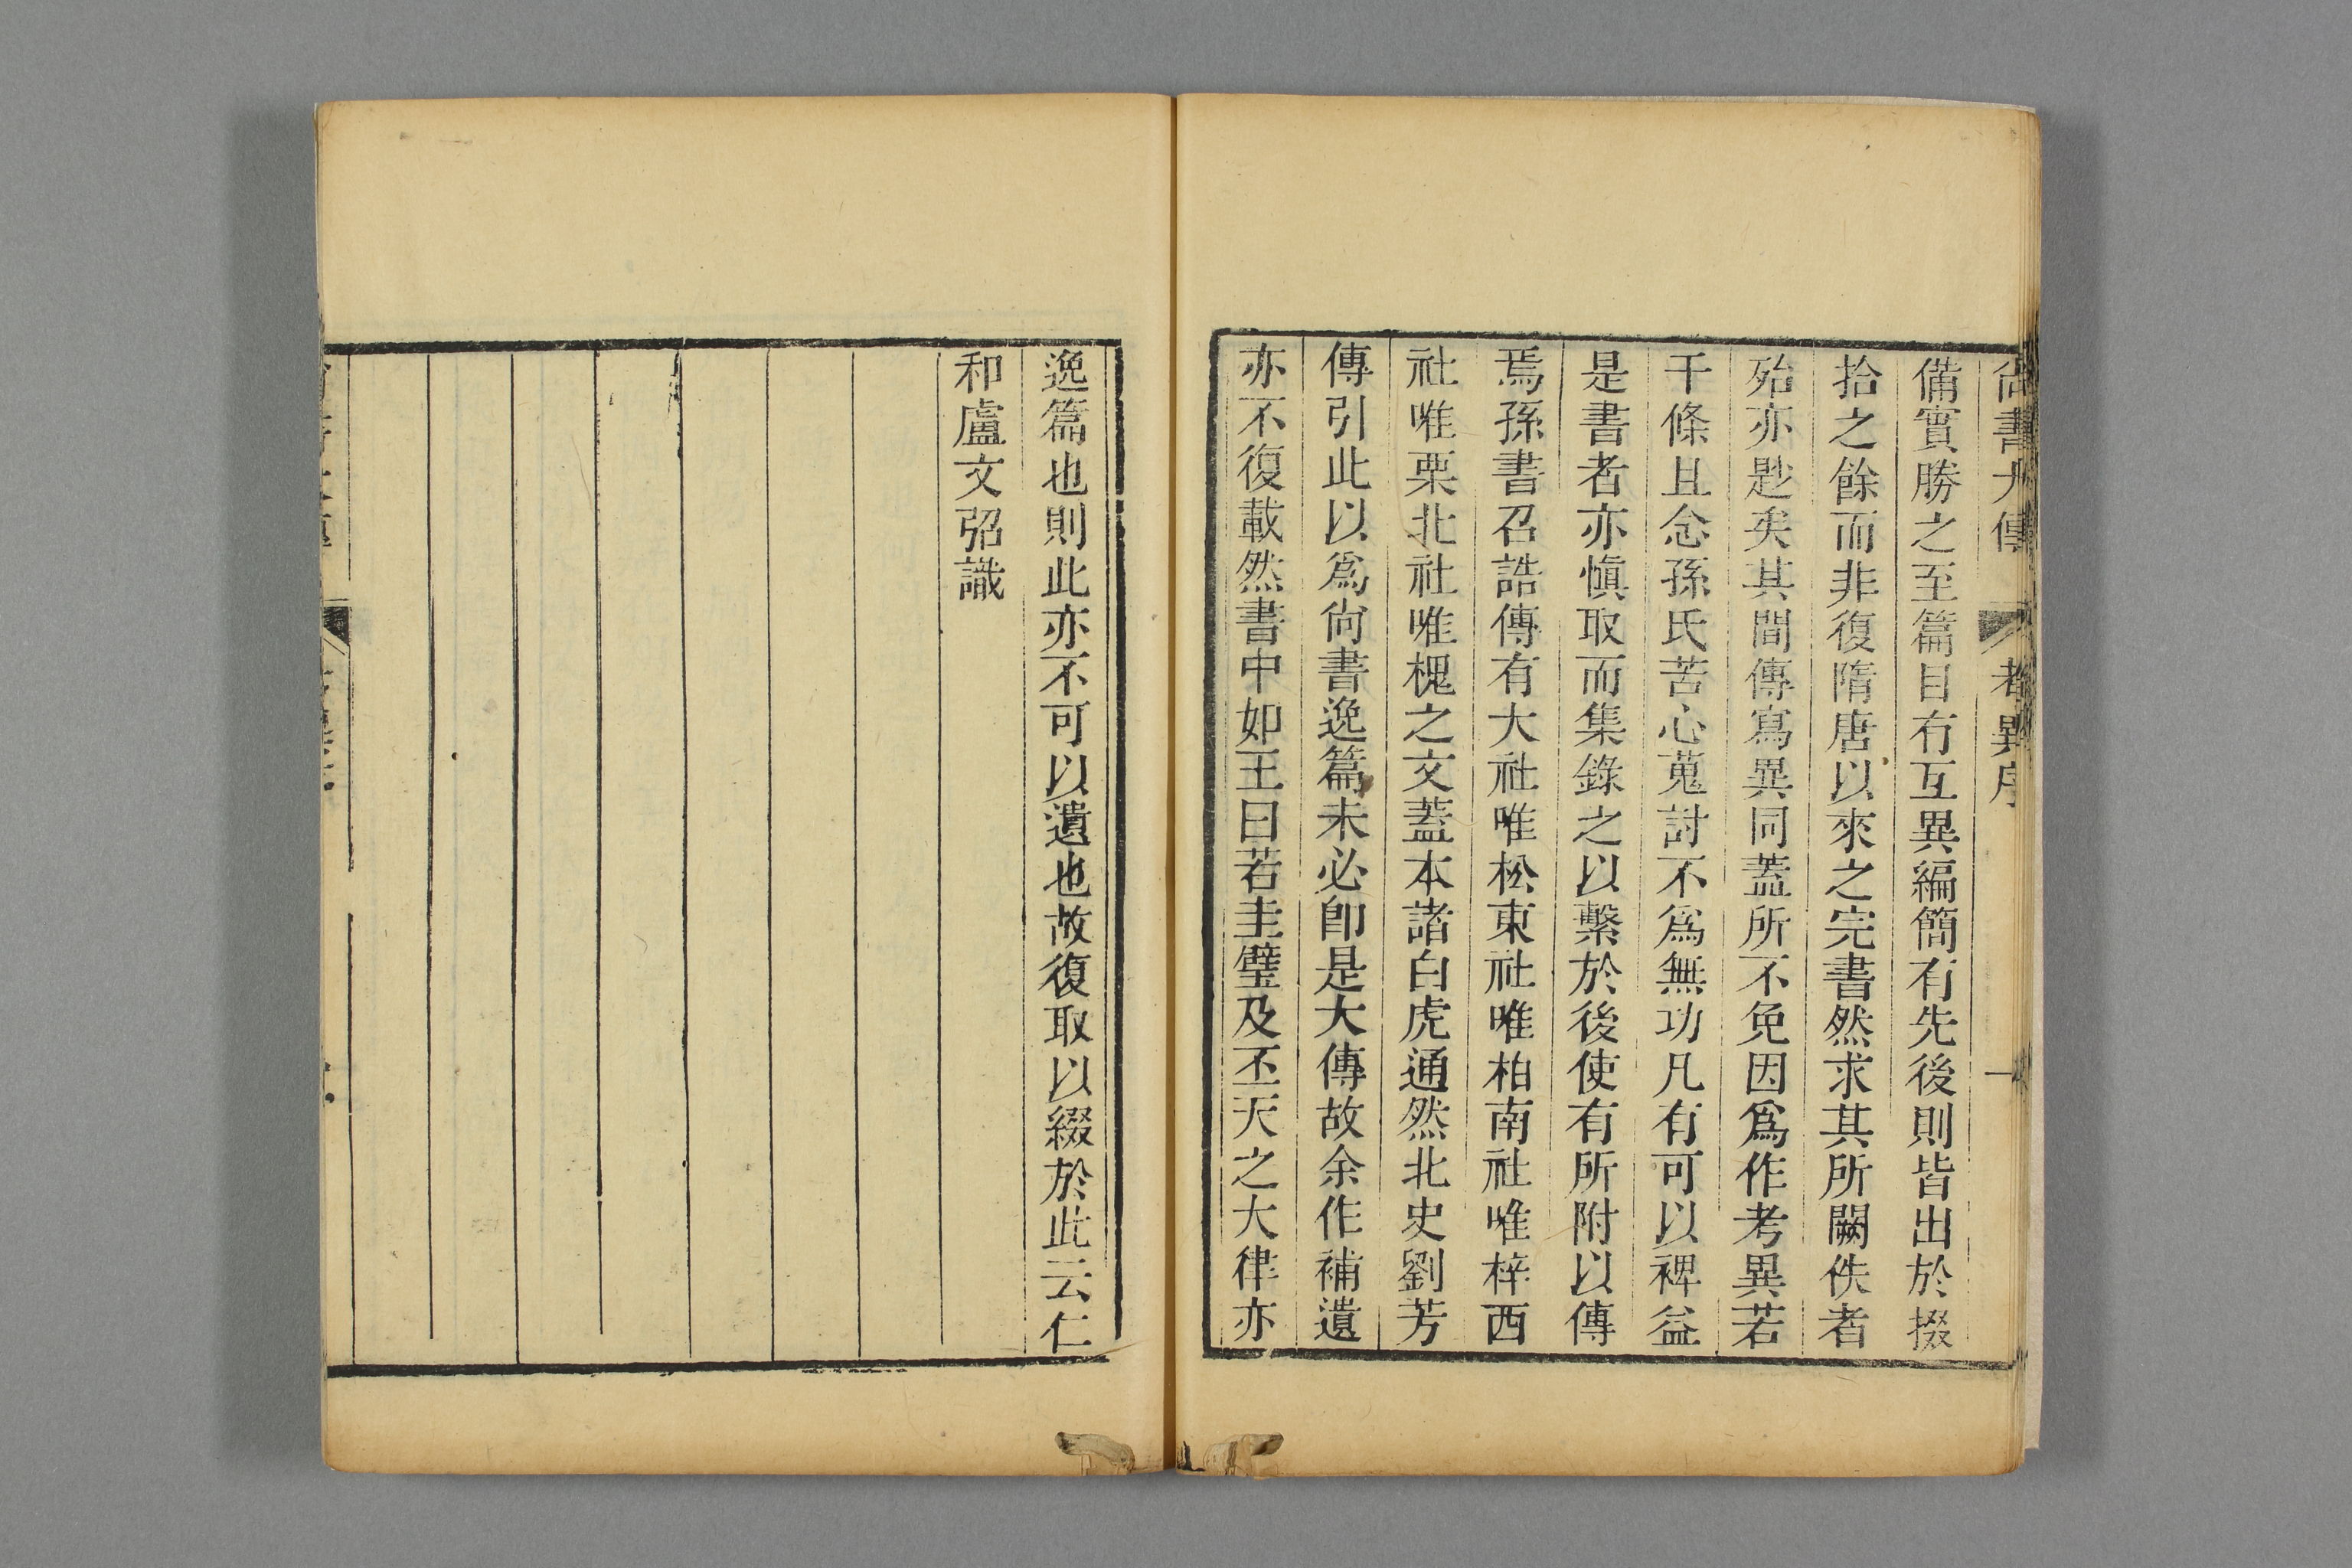 尚書大傳 考異序 一
備實勝之至篇目有互異編簡有先後則皆出於掇
拾之餘而非復隋唐以來之完書然求其所闕佚者
殆亦尠矣其間傳寫異同蓋所不免因爲作考異若
干條且念孫氏苦心蒐討不爲無功凡有可以裨益
是書者亦愼取而集錄之以繫於後使有所附以傳
焉孫書召誥傳有大社唯松東社唯柏南社唯梓西
社唯栗北社唯槐之文蓋本諸白虎通然北史劉芳
傳引此以爲尙書逸篇未必卽是大傳故余作補遺
亦不復載然書中如王曰若圭璧及丕天之大律亦
逸篇也則此亦不可以遺也故復取以綴於此云仁
和盧文弨識